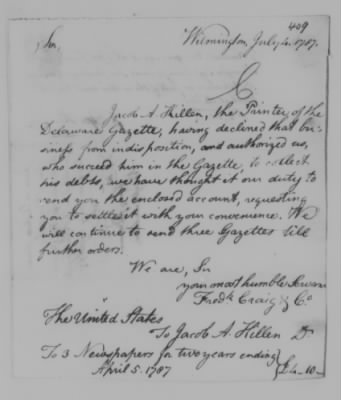 409
Wilmington, July 4. 1787.
Sir,
Jacob A. Killen, the Printer of the
Delaware Gazette, having declined that bu-
siness from indisposition, and authorized us,
who succeed him in the Gazette, to collect
his debts, we have thought it our duty to
send you the enclosed account, requesting
you to settle it with your convenience. We
will continue to send three Gazettes till
further orders.
We are, Sir
your most humble Servants
Fredk. Craig & Co
The United States
To Jacob A. Killen Dr.
To 3 Newspapers for two years ending
April 5. 1787